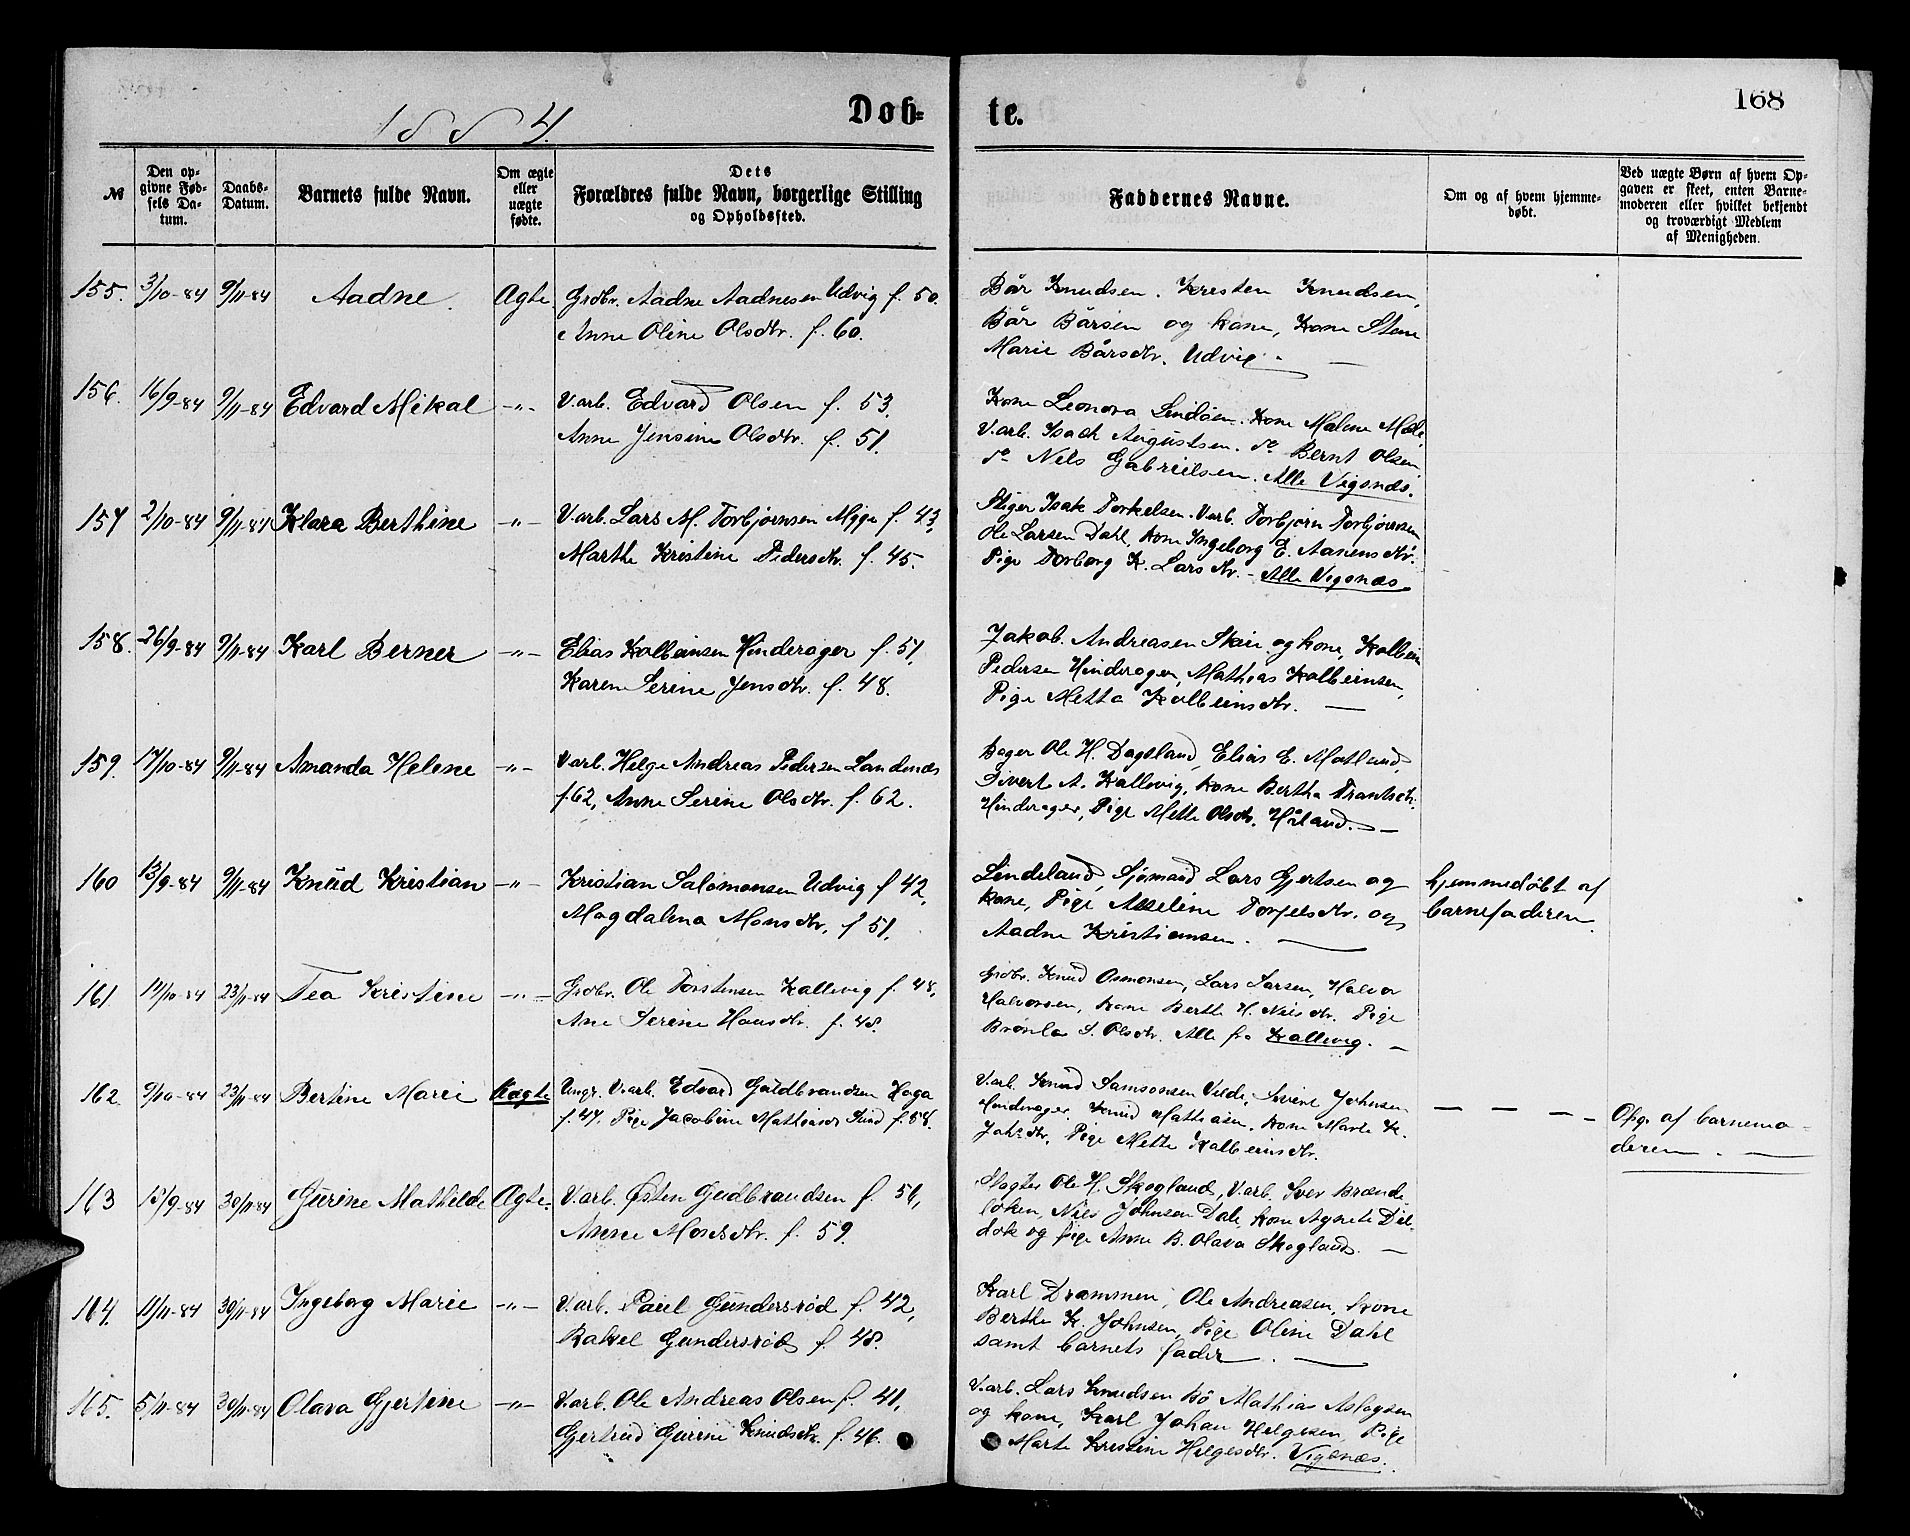 1884.
Døb=
te.
168
№
Den opgivne Fødsels Datum.
Daabs-Datum.
Barnets fulde Navn.
Om ægte eller uægte fødte.
Dets Forældres fulde Navn, borgerlige Stilling og Opholdssted.
Faddernes Navne.
Om og af hvem hjemmedøbt.
Ved uægte Børn af hvem Opgaven er skeet, enten Barnemoderen eller hvilket bekjendt og troværdigt Medlem af Menigheden.
155. 3/10-84 9/11-84 Aadne Ægte Grdbr. Aadne Aadnesen Udvig f. 50.
Anne Oline Olsdtr. f. 60.
Bår Knudsen. Kresten Knudsen,
Bår Bårsen og kone, Kone Stene
Marie Bårsdtr. Udvig. —
156. 16/9-84 9/11-84 Edvard Mikal -"- V.arb. Edvard Olsen f. 53.
Anne Jensine Olsdtr. f. 51.
Kone Leonora Lindøen. Kone Malene
V.arb. Isach Augustsen. do Bernt Olsen
do Nils Gabrielsen. Alle Vigsnes.
157 2/10-84 9/11-84 Klara Berthine -"- V.arb. Lars M. Torbjørnsen Mgge f. 43,
Marthe Kristine Pedersdtr. f. 45.
Stiger Isak Torkelsen. V.arb. Torbjørn Torbjørnsen
Ole Larsen Dahl, Kone Ingeborg E. Aanensdtr.
Pige Torborg K. Larsdtr. - Alle Vigsnæs
158. 26/9-84 9/11-84 Karl Berner -"- Elias Kolbeinsen Hinderager f. 51,
Karen Serine Jensdtr. f. 48.
Jakob Andreasen Skeie og kone, Kolbein
Pedersen Hinderager, Mathias Kolbeinsen,
Pige Metta Kolbeinsdtr. —
159. 17/10-84 9/11-84 Amanda Helene -"- V.arb. Helge Andreas Pedersen Landenæs
f. 62, Anne Serine Olsdtr. f. 62.
Bager Ole H. Dagsland, Elias E. Matland,
Sivert A. Kallevig, Kone Bertha
Hinderager, Pige Mette Olsdtr. Håland. —
160 13/9-84 9/11-84 Knud Kristian -"- Kristian Salomonsen Udvig f 42,
Magdalena Monsdtr. f 51.
Lindeland, Sjømand Lars Gjertsen og
kone, Pige Asseline Torfelsdtr. og
Aadne Kristiansen. —
hjemmedøbt af
barnefaderen.
161. 12/10-84 23/11-84 Tea Kristine -"- Grdbr. Ole Torstensen Kallevig f. 48,
Ane Serine Hansdtr. f. 48.
Grdbr. Knud Osmonsen, Lars Larsen, Halvor
Halvorsen, Kone Berthe H. Nilsdtr. Pige
S. Olsdtr. Alle fra Kallevig. —
162. 9/10-84 23/11-84 Bertine Marie Uægte Ungk. V.arb. Edvard Guldbrandsen Haga
f. 47. Pige Jacobine Mathiasdr Sund f. 58.
V.arb. Knud Samsonsen Velde, Sivert Johnsen
Hinderager, Knud Mathiasen, Kone Marte K.
Johsdtr, Pige Mette Kolbeinsdtr.
— — — - Opg. af barnemo-
deren. —
163 15/9-84 30/11-84 Gurine Mathilde Ægte. V.arb. Østen Gudbrandsen f. 56,
Anne Monsdtr. f. 59.
Slagter Ole H. Skogland, V.arb. Iver Brænde
løken, Nils Johnsen Dale, kone Agnete
og pige Anne B. Olava Skogland. —
164. 11/11-84 30/11-84 Ingeborg Marie -"- V.arb. Paul Gundersrød f. 42,
Rakel Gundersrød f. 48.
Karl Drammen, Ole Andreasen, kone
Berthe K. Johnsen, Pige Oline Dahl
samt barnets fader. —
165. 5/11-84 30/11-84 Olava Gjertine -"- V.arb. Ole Andreas Olsen f. 41,
Gertrud Gurine Knudsdtr. f. 46.
V.arb. Lars Knudsen Bø Mathias Aslagsen
og kone, Karl Johan Helgesen, Pige
Marte Kristine Helgesdtr. Vigsnæs.